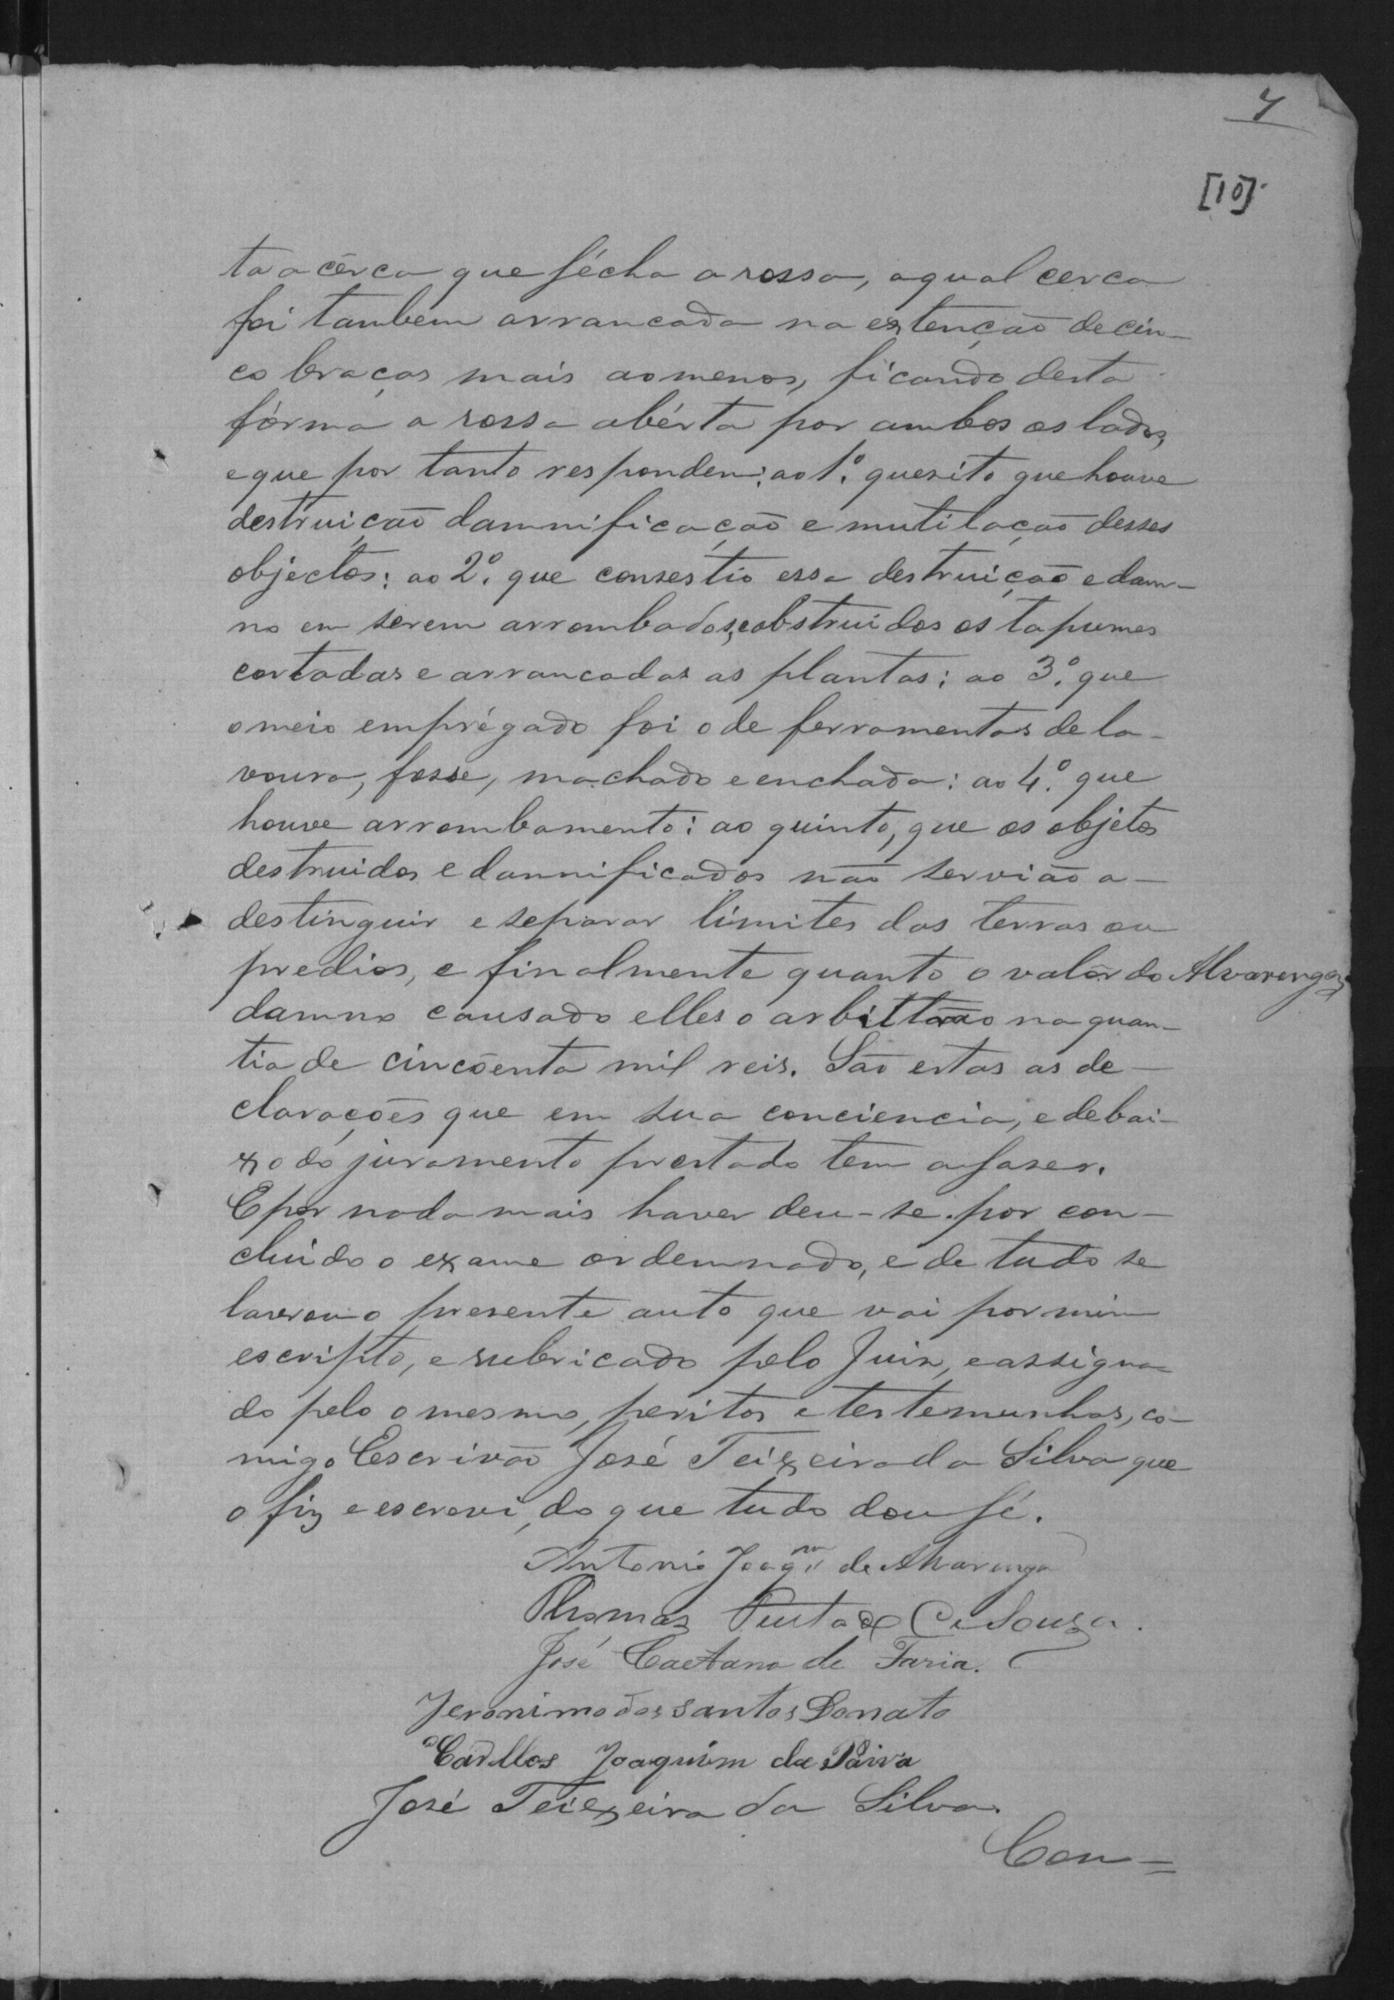 7
[10]
ta a cêrca que fécha a rossa, a qual cerca
foi tambem arrancada na extenção de cin-
co braças mais ao menos, ficando desta
fórma a rossa abérta por ambos os lados,
e que por tanto respondem: ao 1º. quesito que houve
destruição damnificação e mutilação desses
objectos: ao 2º. que consestio essa destruição e dam-
no em serem arrombados, e obstruidos os tapumes
cortadas e arrancadas as plantas: ao 3º. que
o meio emprégado foi o de ferramentas de la-
voura, fosse, machado e enchada: ao 4º. que
houve arrombamento: ao quinto, que os objetos
destruidos e damnificados não servião a-
destinguir e separar limites das terras ou
predios, e finalmente quanto o valôr do Alvarenga
damno causado elles o arbittarão na quan-
tia de cincoenta mil reis. São estas as de-
clarações que em sua conciencia, e debai-
xo do juramento prestado tem a faser.
E por nada mais haver deu-se por con-
cluido o exame ordemnado, e de tudo se
lavrou o presente auto que vai por mim
escripto, e rubricado pelo Juiz, e assigna-
do pelo o mesmo, peritos e testemunhas, co-
migo Escrivão José Teixeira da Silva que
o fiz e escrevi, do que tudo dou fé.
Antonio Joaqm. de Alvarenga
Thomas Furtado de Souza.
José Caetano de Faria.
Jeronimo dos Santos Donato
Carllos Joaquim de Paiva
José Teixeira da Silva.
Con=